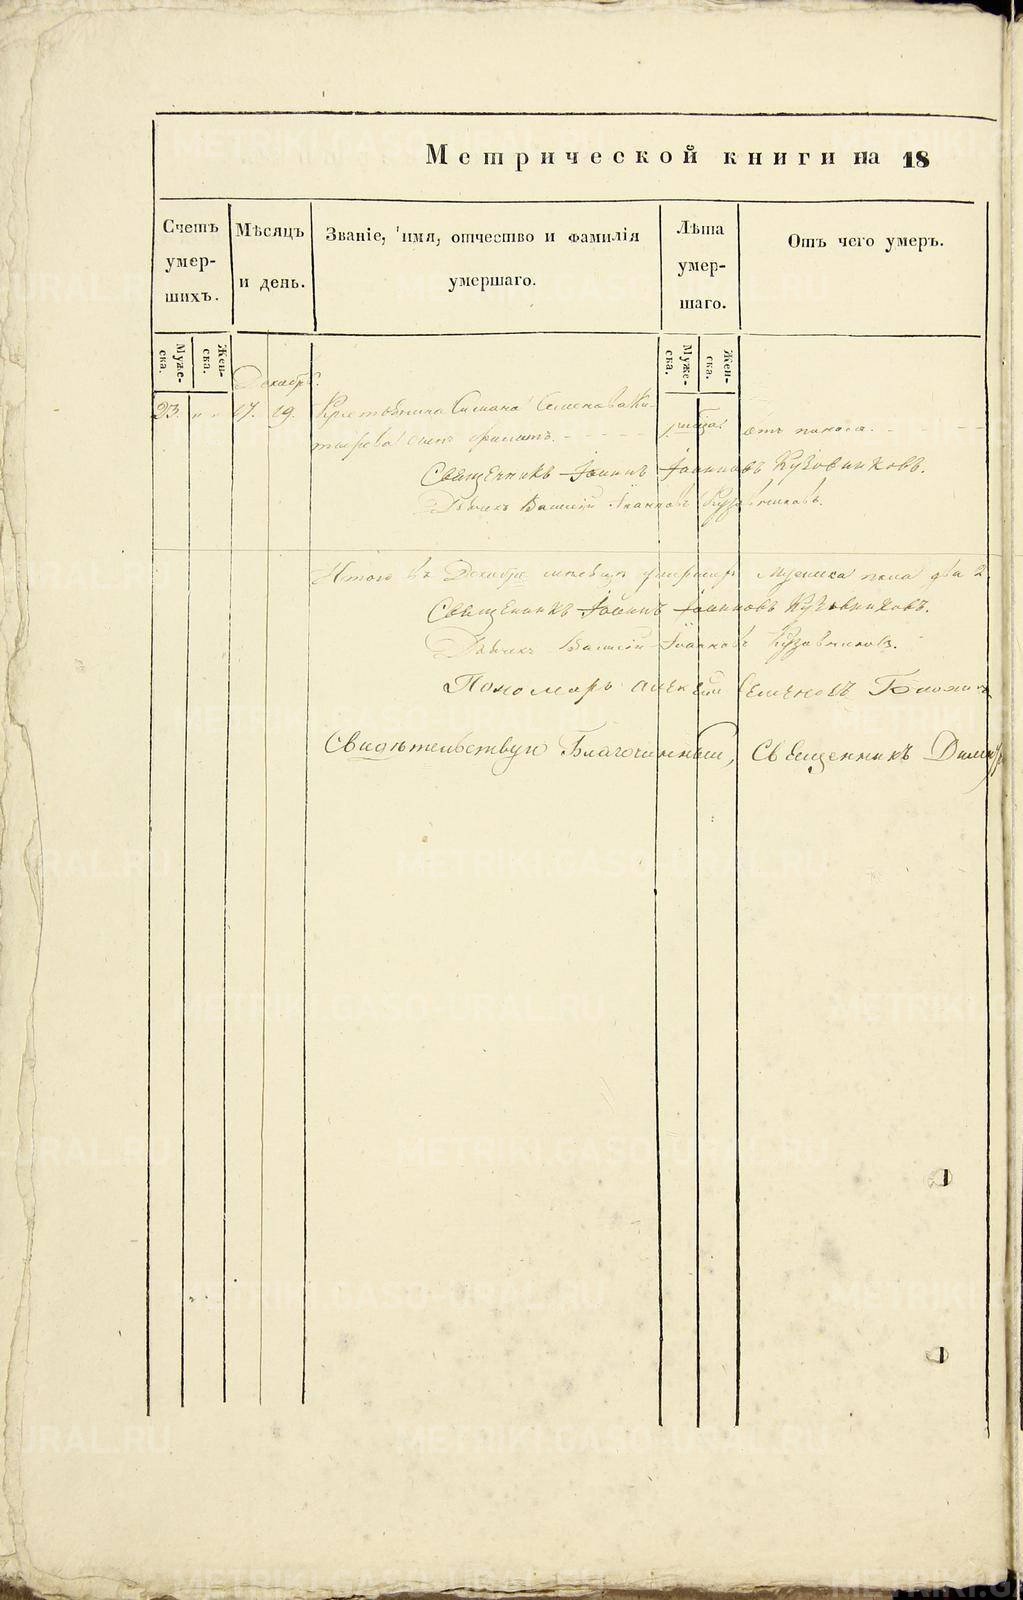 Метрической книги на 18
Счетъ умер-шихъ.
Мѣсяцъ и день.
Званіе, имя, отчество и фамилія умершаго.
Лѣта умер-шаго.
Отъ чего умеръ.
Муже-ска.
Жен-ска.
Муже-ска.
Жен-ска.
Декабрь.
23. " " 17. 19. Крестьянина Симеона Семенова
сынъ Филипъ. отъ поноса.
Священникъ Іоаннъ Іоанновъ Кузовниковъ.
Дьячекъ Василій Іоанновъ Кузовниковъ.
Итого въ Декабрѣ мѣсяцѣ умершихъ мужеска пола два 2.
Священникъ Іоаннъ Іоанновъ Кузовниковъ.
Дьячекъ Василий Іоанновъ Кузовниковъ.
Пономарь Алексѣй Семеновъ
Свидѣтельствую Благочинный, Священникъ
METRIKI.GASO-URAL.RU